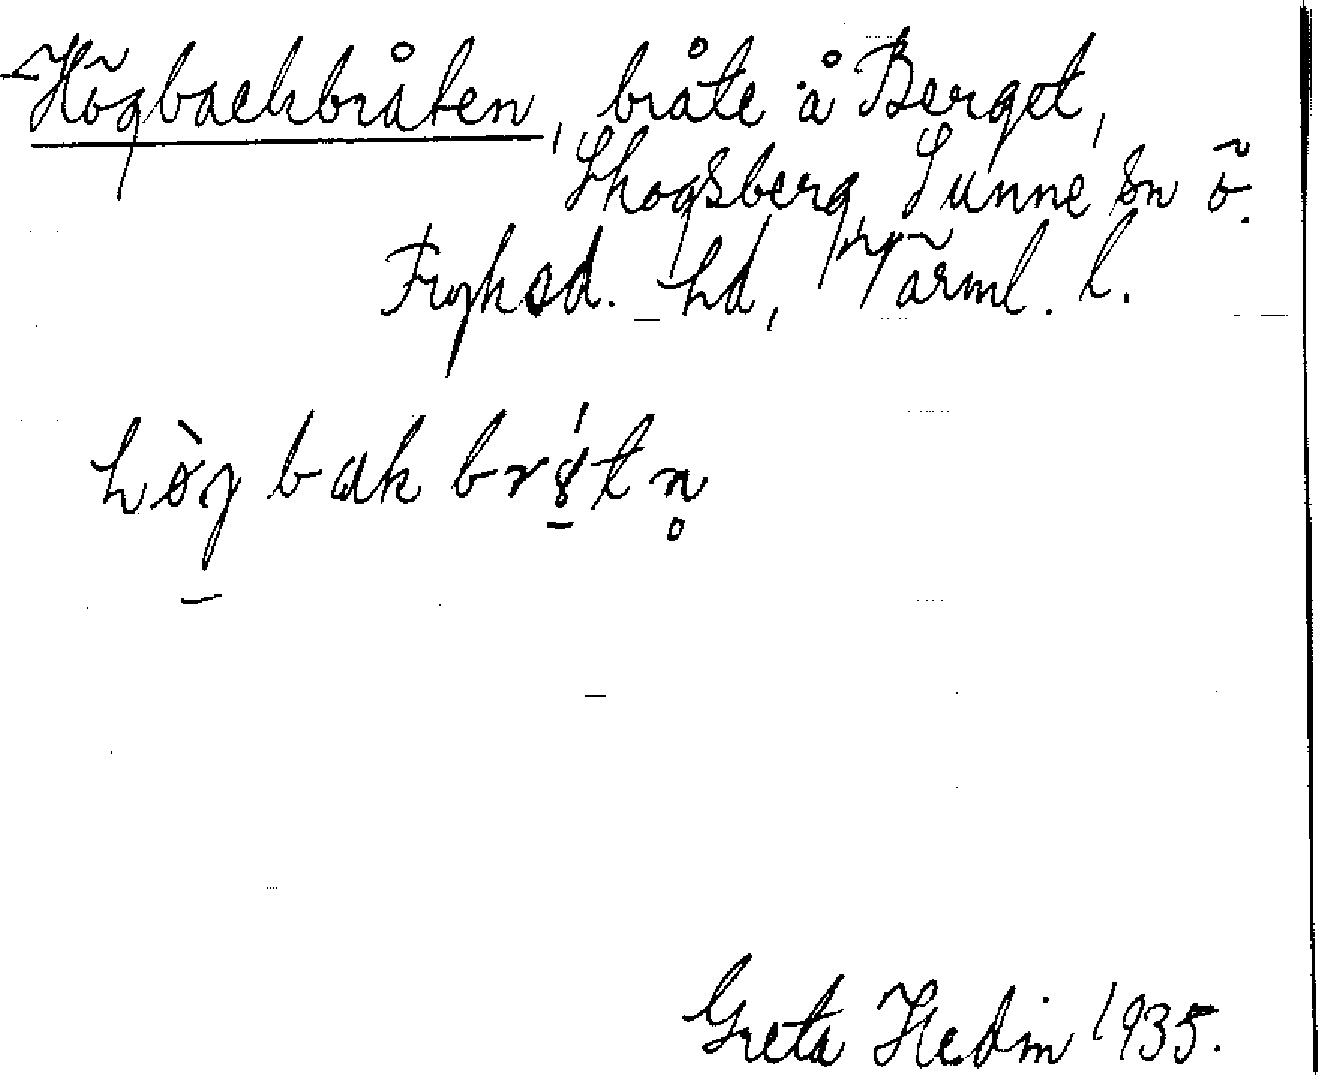 Högbackbråten, bråte å Berget,
Skogsberg, Sunne sn Ö.
Fryksd. hd, Värml. l.
hø̀gbakbrǻtn̥
Greta Hedin 1935.